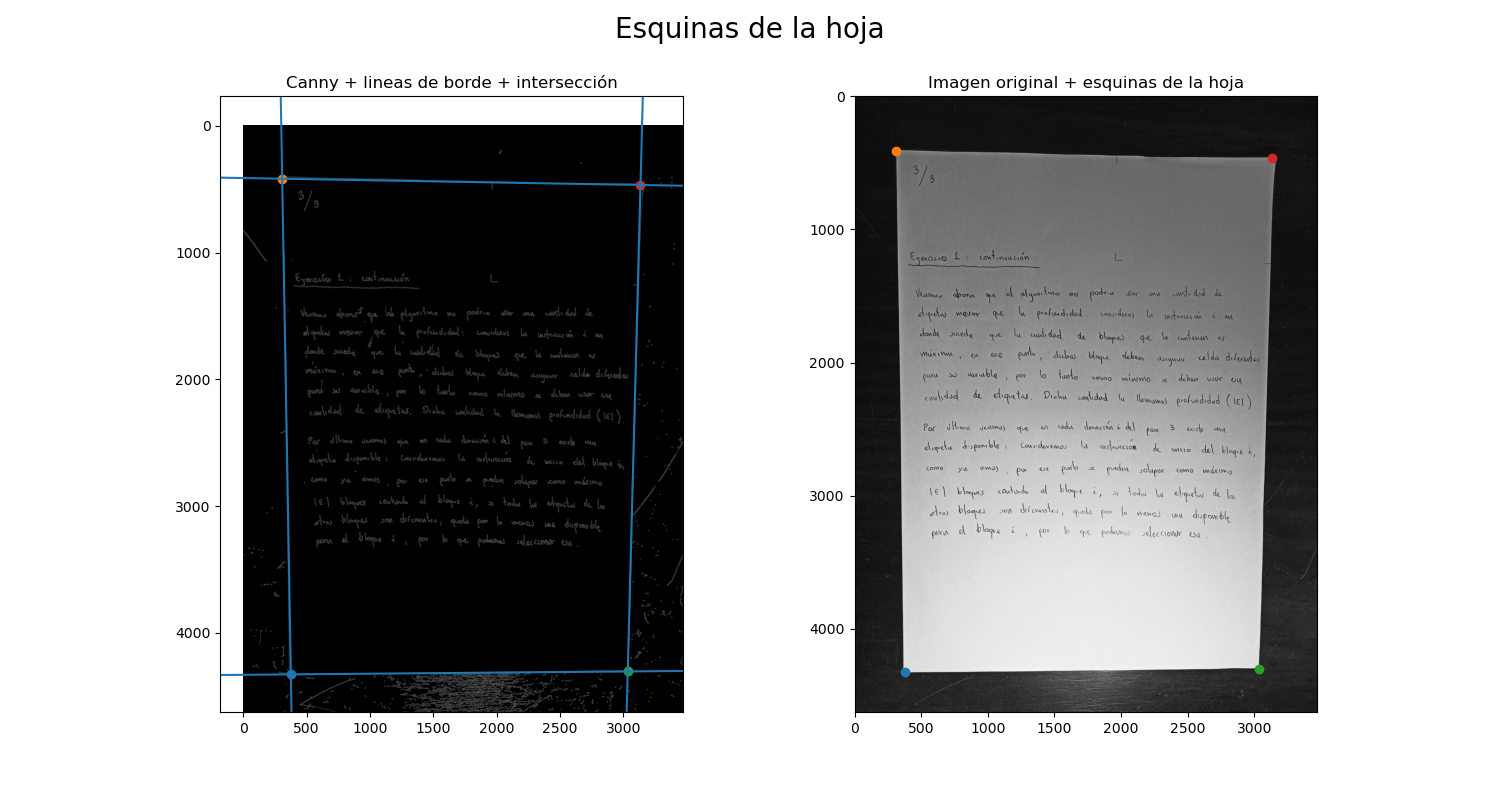 Esquinas de la hoja
Canny + lineas de borde + intersección
0
1000
2000
3000
4000
0
500
1000
1500
2000
2500
3000
3/3
Ejercicio 1: continuación
Veamos ahora que el algoritmo no podria usar una cantidad de
etiquetas menor que la profundidad: consideros la instrucción i en
donde sucede que la cantidad de bloques que la contienen es
máxima, en ese punto, dichos bloque deben asignar celda diferentes
para su variable, por lo tanto como minimo se deben usar esa
cantidad de etiquetas. Dicha cantidad la llamamos profundidad (|E|).
Por último veamos que en cada iteración i del paso 3 existe una
etiqueta disponible: Consideremos la instrucción de inicio del bloque i,
como ya vimos, por ese punto se pueden solapar como máximo
|E| bloques contando al bloque i, si todas las etiquetas de los
otros bloques son diferentes, queda por lo menos una disponible
para el bloque i, por lo que podemos seleccionar esa.
Imagen original + esquinas de la hoja
0
1000
2000
3000
4000
0
500
1000
1500
2000
2500
3000
3/3
Ejercicio 1: continuación
Veamos ahora que el algoritmo no podria usar una cantidad de
etiquetas menor que la profundidad: consideros la instrucción i en
donde sucede que la cantidad de bloques que la contienen es
máxima, en ese punto, dichos bloque deben asignar celda diferentes
para su variable, por lo tanto como minimo se deben usar esa
cantidad de etiquetas. Dicha cantidad la llamamos profundidad (|E|)
Por último veamos que en cada iteración i del paso 3 existe una
etiqueta disponible: Consideremos la instrucción de inicio del bloque i,
como ya vimos, por ese punto se pueden solapar como máximo
|E| bloques contando al bloque i, si todas las etiquetas de los
otros bloques son diferentes, queda por lo menos una disponible
para el bloque i, por lo que podemos seleccionar esa.